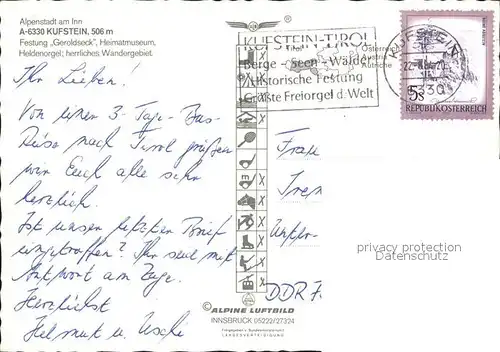 Alpenstadt am Inn
A-6330 KUFSTEIN, 506 m
Festung „Geroldseck", Heimatmuseum,
Heldenorgel; herrliches Wandergebiet.
KUFSTEIN-TIROL
Berge - Seen - Wälder
Historische Festung
Größte Freiorgel d. Welt
KUFSTEIN
6330
Österreich
Austria
Autriche
5s
REPUBLIK ÖSTERREICH
Ihr Lieben!
Von einer 3-Tage-Bus-
Reise nach Tirol grüßen
wir Euch alle sehr
herzlich.
Ist unser letzter Brief
eingetroffen? Ihr seid mit
Antwort am Zuge.
Herzlichst
Helmut u. Uschi
Frau
Iren
Unter-
DDR 7
privacy protection
Datenschutz
© ALPINE LUFTBILD
INNSBRUCK 05222/27324
LANDESVERTEIDIGUNG